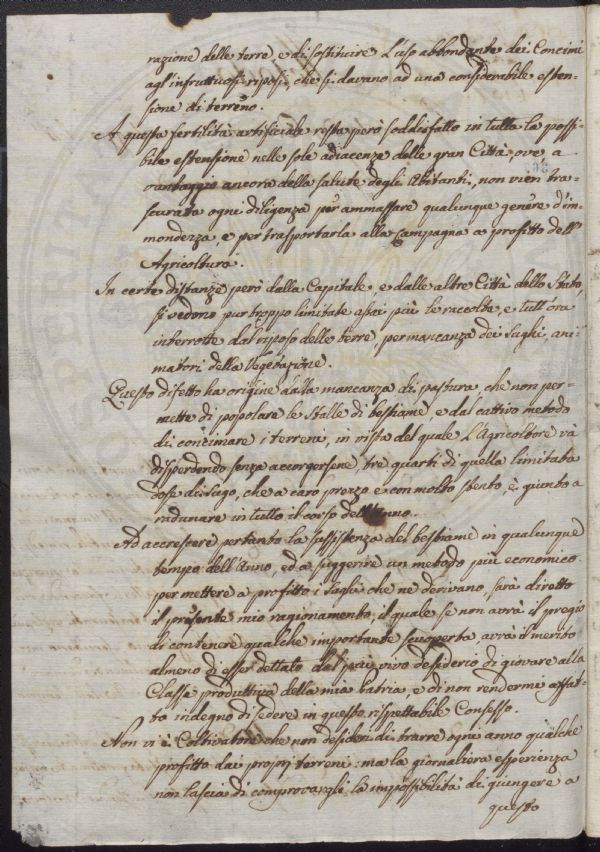 razione delle terre e di sostituire l'uso abbondante dei Concimi
agl'infruttuosi riposi, che si davano ad una considerabile esten-
sione di terreno.
A questa fertilità artificiale resta però soddisfatto in tutta la possi-
bile estensione nelle sole adiacenze delle gran Città, ove, a
vantaggio ancora della salute degli Abitanti, non vien tra-
scurata ogni diligenza per ammassare qualunque genere d'im-
mondezza, e per trasportarla alla Campagna a profitto dell'
Agricoltura.
In certe distanze però dalla Capitale, e dalle altre Città dello Stato,
si vedono pur troppo limitate assai più le raccolte, e tutt'ora
interrotte dal riposo delle terre, per mancanza dei sughi, ani-
matori della Vegetazione.
Questo difetto ha origine dalla mancanza di pastura che non per-
mette di popolare le Stalle di bestiame, e dal cattivo metodo
di concimare i terreni, in vista del quale l'Agricoltore và
disperdendo senza accorgersene, tre quarti di quella limitata
dose di sugo, che a caro prezzo e con molto stento, è giunto a
radunare in tutto il corso dell'Anno.
Ad accrescere pertanto la sussistenza del bestiame in qualunque
tempo dell'Anno, ed a suggerire un metodo più economico
per mettere a profitto i sughi che ne derivano, sarà diretto
il presente mio ragionamento, il quale se non avrà il pregio
di contenere qualche importante scuoperta, avrà il merito
almeno di esser dettato dal più vivo desiderio di giovare alla
Classe produttiva della mia Patria, e di non rendermi affat-
to indegno di sedere in questo rispettabile Consesso.
Non vi è Coltivatore che non desideri di trarre ogni anno qualche
profitto dai propri terreni: ma la giornaliera esperienza
non lascia di comprovargli la impossibilità di giungere a
questo